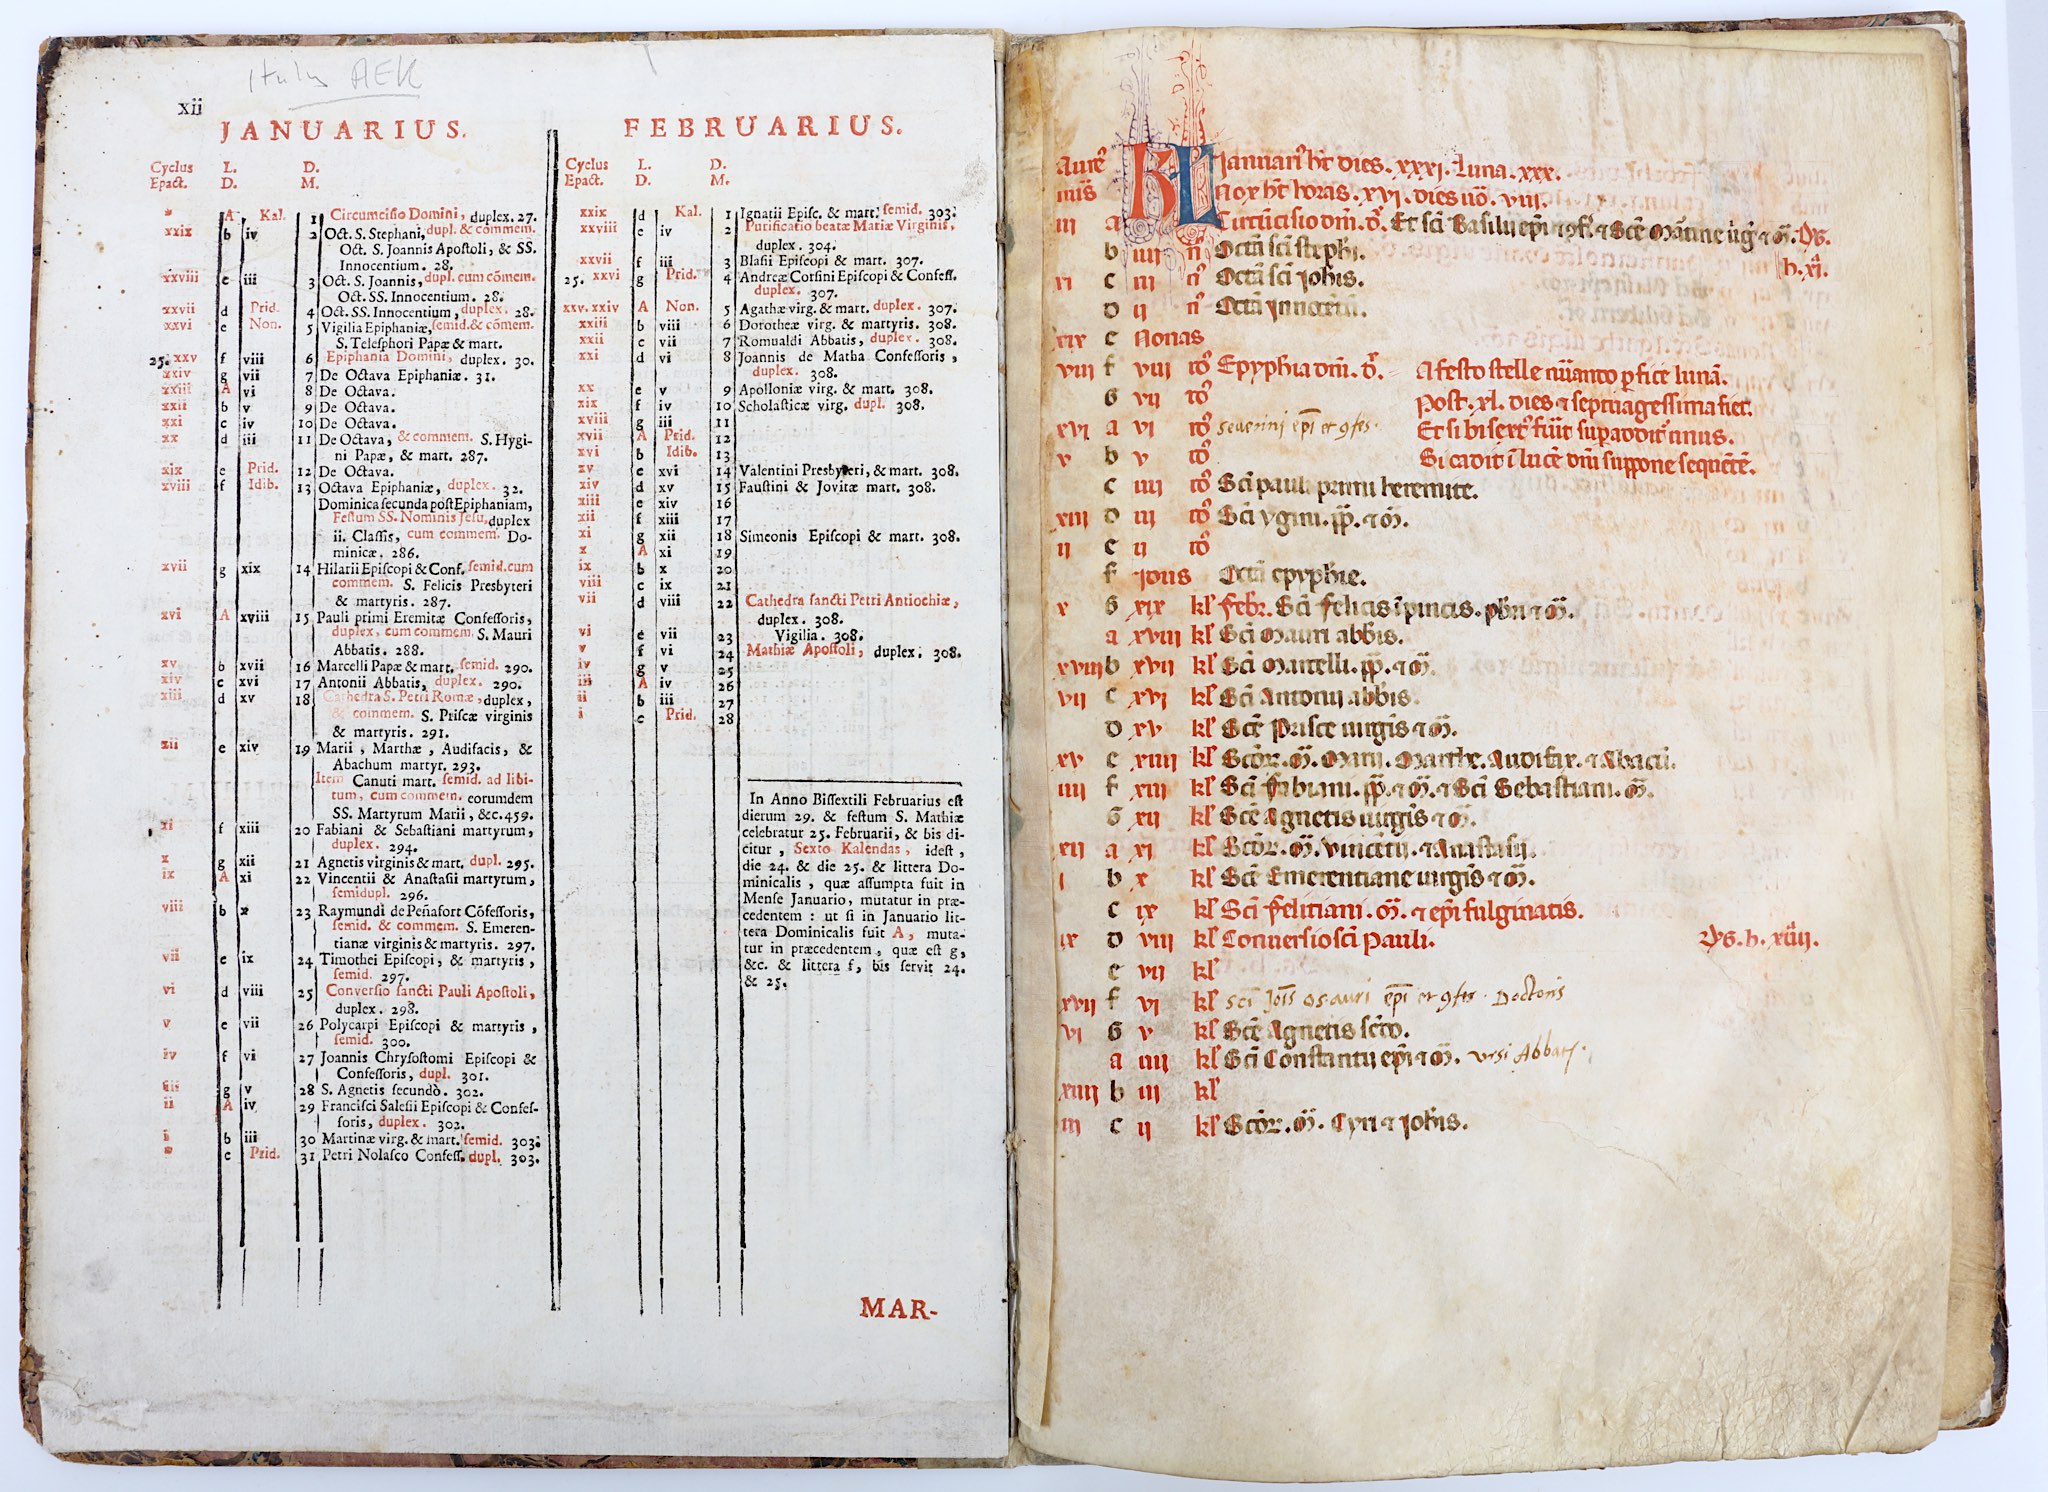 xii
JANUARIUS.
Cyclus L. D.
Epact. D. M.
* A Kal. 1 Circumcisio Domini, duplex. 27.
xxix b iv 2 Oct. S. Stephani, dupl. & commem.
Oct. S. Joannis Apostoli, & SS.
Innocentium. 28.
xxviii c iii 3 Oct. S. Joannis, dupl. cum cõmem.
Oct. SS. Innocentium. 28.
xxvii d Prid. 4 Oct. SS. Innocentium, duplex. 28.
xxvi e Non. 5 Vigilia Epiphaniæ, semid. & cõmem.
S. Telesphori Papæ & mart.
25. xxv f viii 6 Epiphania Domini, duplex. 30.
xxiv g vii 7 De Octava Epiphaniæ. 31.
xxiii A vi 8 De Octava.
xxii b v 9 De Octava.
xxi c iv 10 De Octava.
xx d iii 11 De Octava, & commem. S. Hygi-
ni Papæ, & mart. 287.
xix e Prid. 12 De Octava.
xviii f Idib. 13 Octava Epiphaniæ, duplex. 32.
Dominica secunda post Epiphaniam,
Festum SS. Nominis Jesu, duplex
ii. Classis, cum commem. Do-
minicæ. 286.
xvii g xix 14 Hilarii Episcopi & Conf. semid. cum
commem. S. Felicis Presbyteri
& martyris. 287.
xvi A xviii 15 Pauli primi Eremitæ Confessoris,
duplex, cum commem. S. Mauri
Abbatis. 288.
xv b xvii 16 Marcelli Papæ & mart. semid. 290.
xiv c xvi 17 Antonii Abbatis, duplex. 290.
xiii d xv 18 Cathedra S. Petri Romæ, duplex,
& commem. S. Priscæ virginis
& martyris. 291.
xii e xiv 19 Marii, Marthæ, Audifacis, &
Abachum martyr. 293.
Item Canuti mart. semid. ad libi-
tum, cum commem. eorumdem
SS. Martyrum Marii, &c. 459.
xi f xiii 20 Fabiani & Sebastiani martyrum,
duplex. 294.
x g xii 21 Agnetis virginis & mart. dupl. 295.
ix A xi 22 Vincentii & Anastasii martyrum,
semidupl. 296.
viii b x 23 Raymundi de Peñafort Cõfessoris,
semid. & commem. S. Emeren-
tianæ virginis & martyris. 297.
vii c ix 24 Timothei Episcopi, & martyris,
semid. 297.
vi d viii 25 Conversio sancti Pauli Apostoli,
duplex. 298.
v e vii 26 Polycarpi Episcopi & martyris,
semid. 300.
iv f vi 27 Joannis Chrysostomi Episcopi &
Confessoris, dupl. 301.
iii g v 28 S. Agnetis secundò. 302.
ii A iv 29 Francisci Salesii Episcopi & Confes-
soris, duplex. 302.
i b iii 30 Martinæ virg. & mart. semid. 303.
* c Prid. 31 Petri Nolasco Confess. dupl. 303.
FEBRUARIUS.
Cyclus L. D.
Epact. D. M.
xxix d Kal. 1 Ignatii Episc. & mart. semid. 303.
xxviii e iv 2 Purificatio beatæ Mariæ Virginis,
duplex. 304.
xxvii f iii 3 Blasii Episcopi & mart. 307.
25. xxvi g Prid. 4 Andreæ Corsini Episcopi & Confess.
duplex. 307.
xxv. xxiv A Non. 5 Agathæ virg. & mart. duplex. 307.
xxiii b viii 6 Dorotheæ virg. & martyris. 308.
xxii c vii 7 Romualdi Abbatis, duplex. 308.
xxi d vi 8 Joannis de Matha Confessoris,
duplex. 308.
xx e v 9 Apolloniæ virg. & mart. 308.
xix f iv 10 Scholasticæ virg. dupl. 308.
xviii g iii 11
xvii A Prid. 12
xvi b Idib. 13
xv c xvi 14 Valentini Presbyteri, & mart. 308.
xiv d xv 15 Faustini & Jovitæ mart. 308.
xiii e xiv 16
xii f xiii 17
xi g xii 18 Simeonis Episcopi & mart. 308.
x A xi 19
ix b x 20
viii c ix 21
vii d viii 22 Cathedra sancti Petri Antiochiæ,
duplex. 308.
vi e vii 23 Vigilia. 308.
v f vi 24 Mathiæ Apostoli, duplex. 308.
iv g v 25
iii A iv 26
ii b iii 27
i c Prid. 28
In Anno Bissextili Februarius est
dierum 29. & festum S. Mathiæ
celebratur 25. Februarii, & bis di-
citur, Sexto Kalendas, idest,
die 24. & die 25. & littera Do-
minicalis, quæ assumpta fuit in
Mense Januario, mutatur in præ-
cedentem: ut si in Januario lit-
tera Dominicalis fuit A, muta-
tur in præcedentem, quæ est g,
&c. & littera f, bis servit 24.
& 25.
MAR-
KL Januari' hēt dies. xxxi. Luna. xxx.
Nox hēt horas. xvi. dies ūo. viii.
iii a Circūcisio dn̄i. Et sc̄i Basilii ep̄i
b iiii n̄ Octā sc̄i steph̄i.
xi c iii n̄ Octā sc̄i Joh̄is.
d ii n̄ Octā Innocētū.
xix e Nonas
viii f viii id' Epyphia dn̄i. A festo stelle nūanto perfice lunā.
G vii id' Post. xl. dies et septuagessima fiet.
xvi a vi id' severini ep̄i et 9fes. Et si bisext' fūit superaddit' unus.
v b v id' Si cadit ī lucē dn̄i suppone sequētē.
c iiii id' Sc̄i pauli primi heremite.
xiii d iii id' Sc̄i ygini. pp̄. et m̄.
ii e ii id'
f Idus Octā epyphie.
x G xix kl' febr. Sc̄i felicis ī pincis. pb̄ri et m̄.
a xviii kl' Sc̄i Mauri abb̄is.
xviii b xvii kl' Sc̄i Marcelli. pp̄. et m̄.
vii c xvi kl' Sc̄i Antonii abb̄is.
d xv kl' Sc̄e Prisce uirgīs et m̄.
xv e xiiii kl' Sc̄or. m̄. Marii. Marthe. Audifax. et Abacū.
iiii f xiii kl' Sc̄i fabiani. pp̄. et m̄. et Sc̄i Sebastiani. m̄.
G xii kl' Sc̄e Agnetis uirgīs et m̄.
xii a xi kl' Sc̄or. m̄. vincētii. et Anastasii.
i b x kl' Sc̄e Emerentiane uirgīs et m̄.
c ix kl' Sc̄i feliciani. m̄. et ep̄i fulginatis.
ix d viii kl' Conuersio sc̄i Pauli.
e vii kl'
xvii f vi kl' sc̄i Jo̅is os auri ep̄i et 9fes. Doctoris
vi G v kl' Sc̄e Agnetis sc̄do.
a iiii kl' Sc̄i Constantii ep̄i et m̄. ursi Abbatis.
xiiii b iii kl'
iii c ii kl' Sc̄or. m̄. Cyri et Joh̄is.